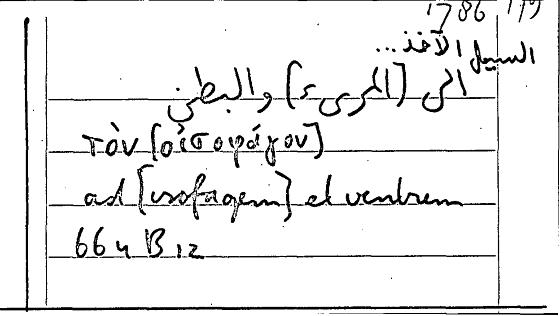 1786 179
السبيل الآخذ...
الى [المرىء] والبطن
τὸν [οἰσοφάγον]
ad [ysofagem] et ventrem
664 B 12